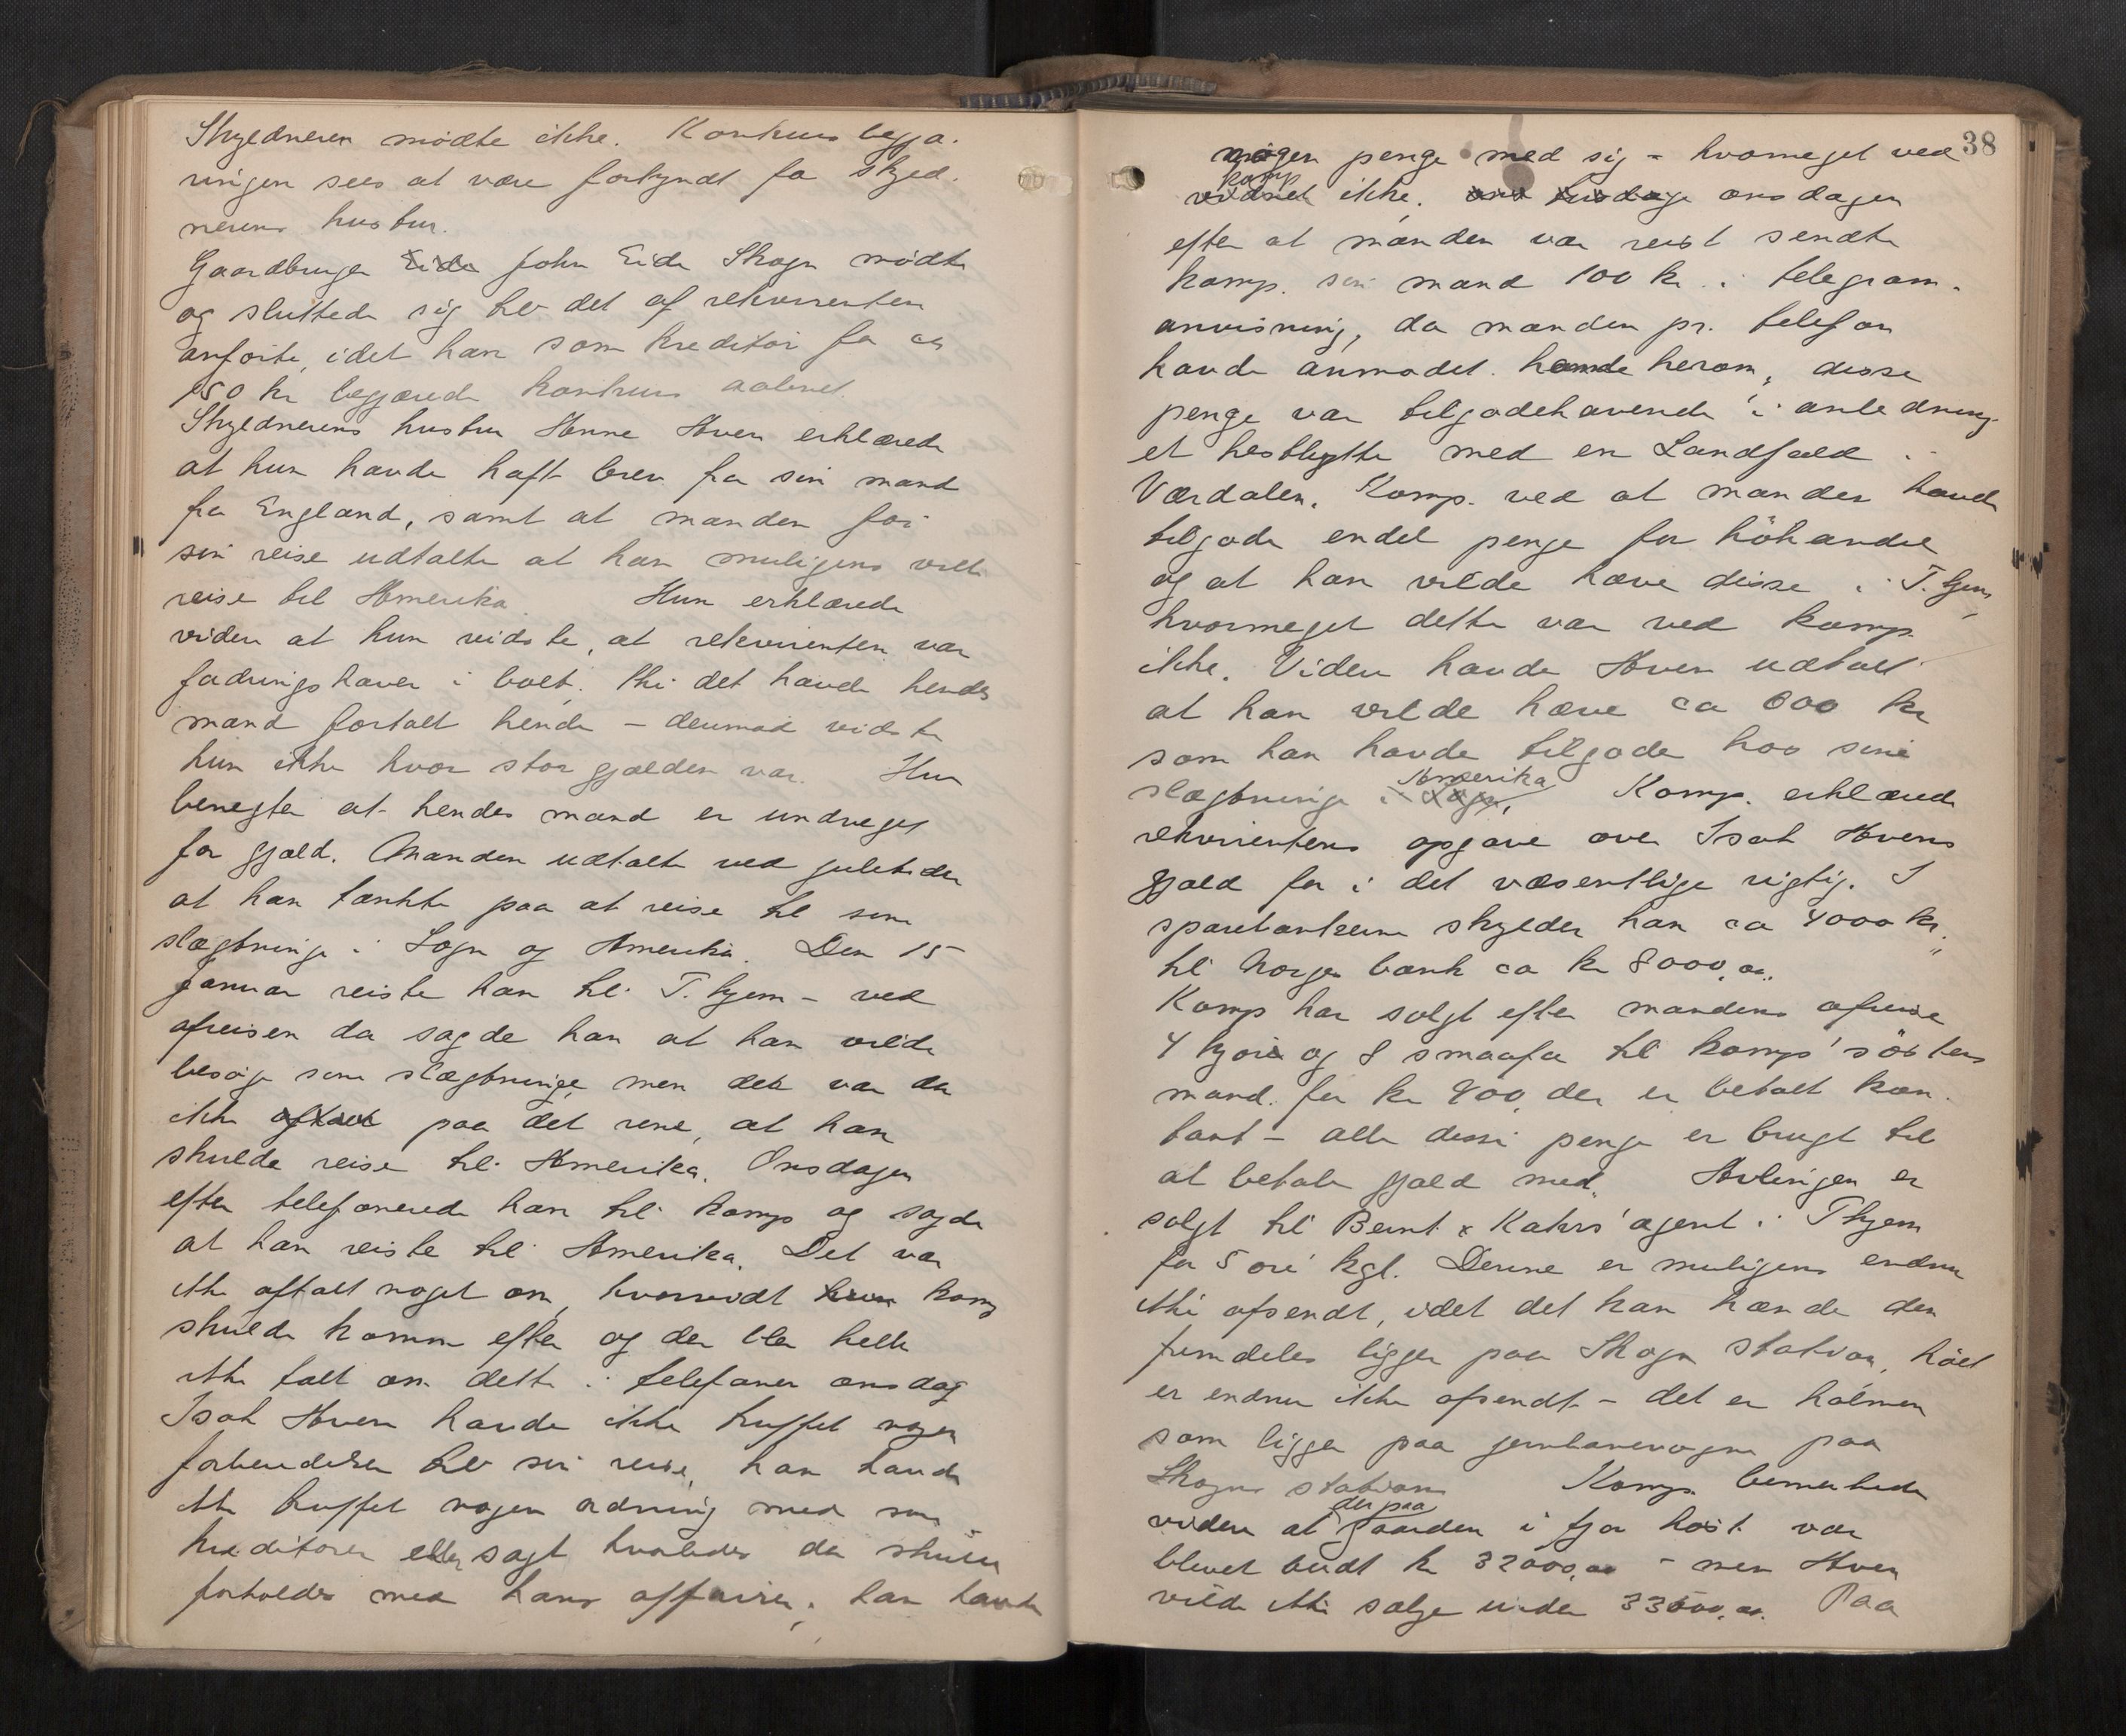 Skyldneren mødte ikke. Konkurs begjæ-
ringen sees at være forkyndt for skyld-
nerens hustru.
Gaardbruger Eide John Eide Skogn mødte
og sluttede sig til det af rekvirenten
anførte, idet han som kreditor for ca
150 kr begjærede konkurs aabnet.
Skyldnerens hustru Anne Aven erklærede
at hun havde haft brev fra sin mand
fra England, samt at manden før
sin reise udtalte at han muligens vilde
reise til Amerika. Hun erklærede
videre at hun vidste, at rekvirenten var
fordringshaver i boet. thi det havde hendes
mand fortalt hende – derimod vidste
hun ikke hvor stor gjælden var. Hun
benegter at hendes mand er undveget
for gjæld. Manden udtalte ved juletider
at han tænkte paa at reise til sine
slægtninge i Sogn og Amerika. Den 15
januar reiste han til T.hjem – ved
afreisen da sagde han at han vilde
besøge sine slægtninge, men det var da
ikke aftalt paa det rene, at han
skulde reise til Amerika. Onsdagen
efter telefonerede han til komp og sagde
at han reiste til Amerika. Det var
ikke aftalt noget om, hvorvidt hun komp
skulde komme efter og der blev heller
ikke talt om dette i telefonen onsdag
Isak Aven havde ikke truffet nogen
forberedelser til sin reise, han havde
ikke truffet nogen ordning med sine
kreditorer eller sagt hvorledes der skulde
forholdes med hans affærer; han havde
38
nogen penge med sig – hvormeget ved
komp
vidnet ikke. onsdagen
efter at manden var reist sendte
komp. sin mand 100 kr. i telegram-
anvisning, da manden pr. telefon
havde anmodet hende herom, disse
penge var tilgodehavende i anledning
et hestbytte med en Landfald i
Værdalen. Komp. ved at manden havde
tilgode endel penge for høhandel
og at han vilde hæve disse i T.hjem,
hvormeget dette var ved komp.
ikke. Videre havde Aven udtalt
at han vilde hæve ca 600 kr
som han havde tilgode hos sine
Amerika
slægtninge i Sogn. Komp. erklærede
rekvirentens opgave over Isak Avens
gjæld for i det væsentlige rigtig. I
sparebankerne skylder han ca 4000 kr.
til Norges bank ca kr 8000,00.
Komp har solgt efter mandens afreise
4 kjør og 8 smaafæ til komps' søsters
mand for kr 800, der er betalt kon-
tant – alle disse penge er brugt til
at betale gjæld med. Avlingen er
solgt til Bernt & Kahrs' agent i T.hjem
for 5 øre kgl. Denne er muligens endnu
ikke afsendt, idet det kan hænde den
fremdeles ligger paa Skogn station, høet
er endnu ikke afsendt – det er halmen
som ligger paa jernbanevogne paa
Skogns station. Komp. bemerkede
der paa
videre at gaarden i fjor høst var
blevet budt kr 32000,00 – men Aven
vilde ikke sælge under 33500,00. Paa